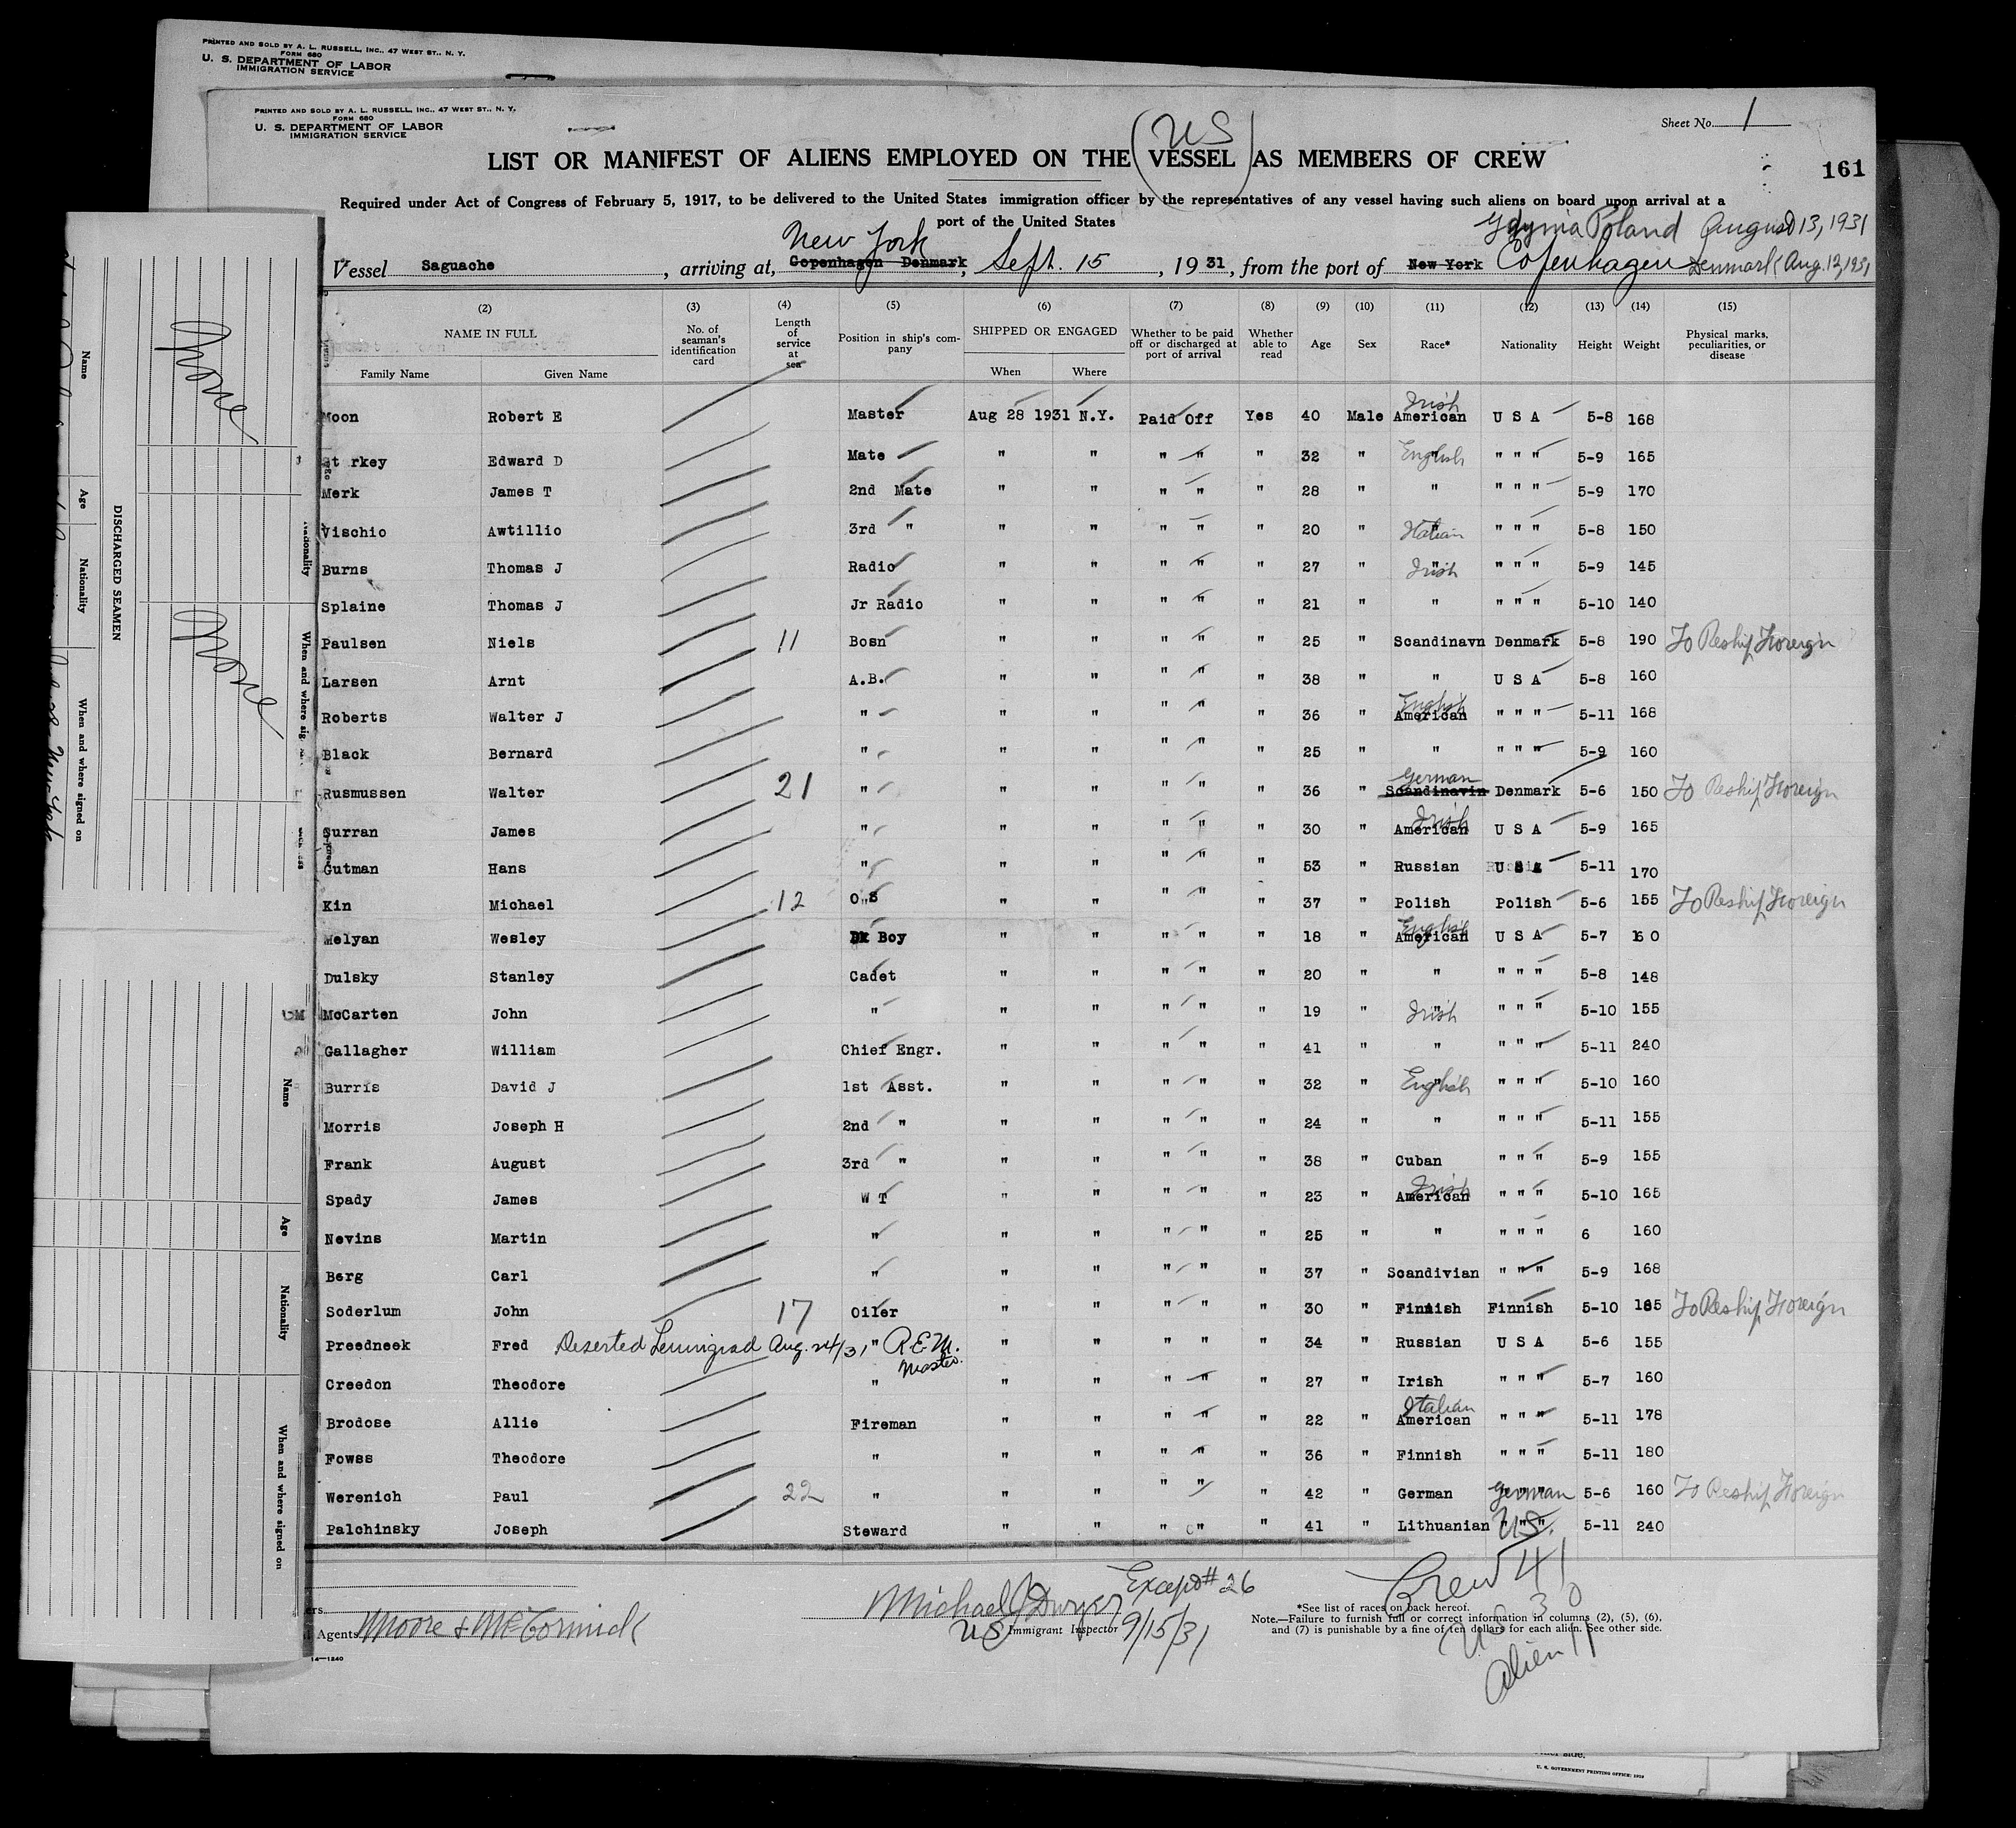 PRINTED AND SOLD BY A. L. RUSSELL, INC., 47 WEST ST., N. Y.
FORM 680
U. S. DEPARTMENT OF LABOR
IMMIGRATION SERVICE
PRINTED AND SOLD BY A. L. RUSSELL, INC., 47 WEST ST., N. Y.
FORM 680
U. S. DEPARTMENT OF LABOR
IMMIGRATION SERVICE
Sheet No. 1
US
LIST OR MANIFEST OF ALIENS EMPLOYED ON THE VESSEL AS MEMBERS OF CREW
161
Required under Act of Congress of February 5, 1917, to be delivered to the United States immigration officer by the representatives of any vessel having such aliens on board upon arrival at a
port of the United States
Gdynia Poland August 13, 1931
New York
Vessel Saguache, arriving at, Copenhagen Denmark, Sept. 15, 1931, from the port of New York Copenhagen Denmark (Aug. 12, 1931
(2) (3) (4) (5) (6) (7) (8) (9) (10) (11) (12) (13) (14) (15)
NAME IN FULL
Family Name Given Name
No. of seaman's identification card
Length of service at sea
Position in ship's company
SHIPPED OR ENGAGED
When Where
Whether to be paid off or discharged at port of arrival
Whether able to read
Age
Sex
Race*
Nationality
Height
Weight
Physical marks, peculiarities, or disease
Moon Robert E Master Aug 28 1931 N.Y. Paid Off Yes 40 Male American Irish U S A 5-8 168
St rkey Edward D Mate " " " " " 32 " English " " " 5-9 165
Merk James T 2nd Mate " " " " " 28 " " " " " 5-9 170
Vischio Awtillio 3rd " " " " " " 20 " Italian " " " 5-8 150
Burns Thomas J Radio " " " " " 27 " Irish " " " 5-9 145
Splaine Thomas J Jr Radio " " " " " 21 " " " " " 5-10 140
Paulsen Niels 11 Bosn " " " " " 25 " Scandinavn Denmark 5-8 190 To Reship Foreign
Larsen Arnt A.B. " " " " " 38 " " U S A 5-8 160
Roberts Walter J " " " " " " 36 " American English " " " 5-11 168
Black Bernard " " " " " " 25 " " " " " 5-9 160
Rusmussen Walter 21 " " " " " " 36 " Scandinavin German Denmark 5-6 150 To Reship Foreign
Curran James " " " " " " 30 " American Irish U S A 5-9 165
Gutman Hans " " " " " " 53 " Russian U S A 5-11 170
Kin Michael 12 O S " " " " " 37 " Polish Polish 5-6 155 To Reship Foreign
Melyan Wesley Dk Boy " " " " " 18 " American English U S A 5-7 160
Dulsky Stanley Cadet " " " " " 20 " " " " " 5-8 148
McCarten John " " " " " " 19 " Irish " " " 5-10 155
Gallagher William Chief Engr. " " " " " 41 " " " " " 5-11 240
Burris David J 1st Asst. " " " " " 32 " English " " " 5-10 160
Morris Joseph H 2nd " " " " " " 24 " " " " " 5-11 155
Frank August 3rd " " " " " " 38 " Cuban " " " 5-9 155
Spady James W T " " " " " 23 " American Irish " " " 5-10 165
Nevins Martin " " " " " " 25 " " " " " 6 160
Berg Carl " " " " " " 37 " Scandivian " " " 5-9 168
Soderlum John 17 Oiler " " " " " 30 " Finnish Finnish 5-10 185 To Reship Foreign
Preedneek Fred Deserted Leningrad Aug. 24/31 " R.E.M. Master. " " " " " 34 " Russian U S A 5-6 155
Creedon Theodore " " " " " " 27 " Irish " " " 5-7 160
Brodose Allie Fireman " " " " " 22 " American Italian " " " 5-11 178
Fowss Theodore " " " " " " 36 " Finnish " " " 5-11 180
Werenich Paul 22 " " " " " " 42 " German German 5-6 160 To Reship Foreign
Palchinsky Joseph Steward " " " " " 41 " Lithuanian U.S. 5-11 240
Except # 26
Michael J Dwyer
US Immigrant Inspector 9/15/31
Agents Moore & McCormick
Crew 41
US 30
Alien 11
*See list of races on back hereof.
Note.—Failure to furnish full or correct information in columns (2), (5), (6),
and (7) is punishable by a fine of ten dollars for each alien. See other side.
14—1240
U. S. GOVERNMENT PRINTING OFFICE
DISCHARGED SEAMEN
Name
Age
Nationality
When and where signed on
None
None
Nationality
When and where
Name
Age
Nationality
When and where signed on